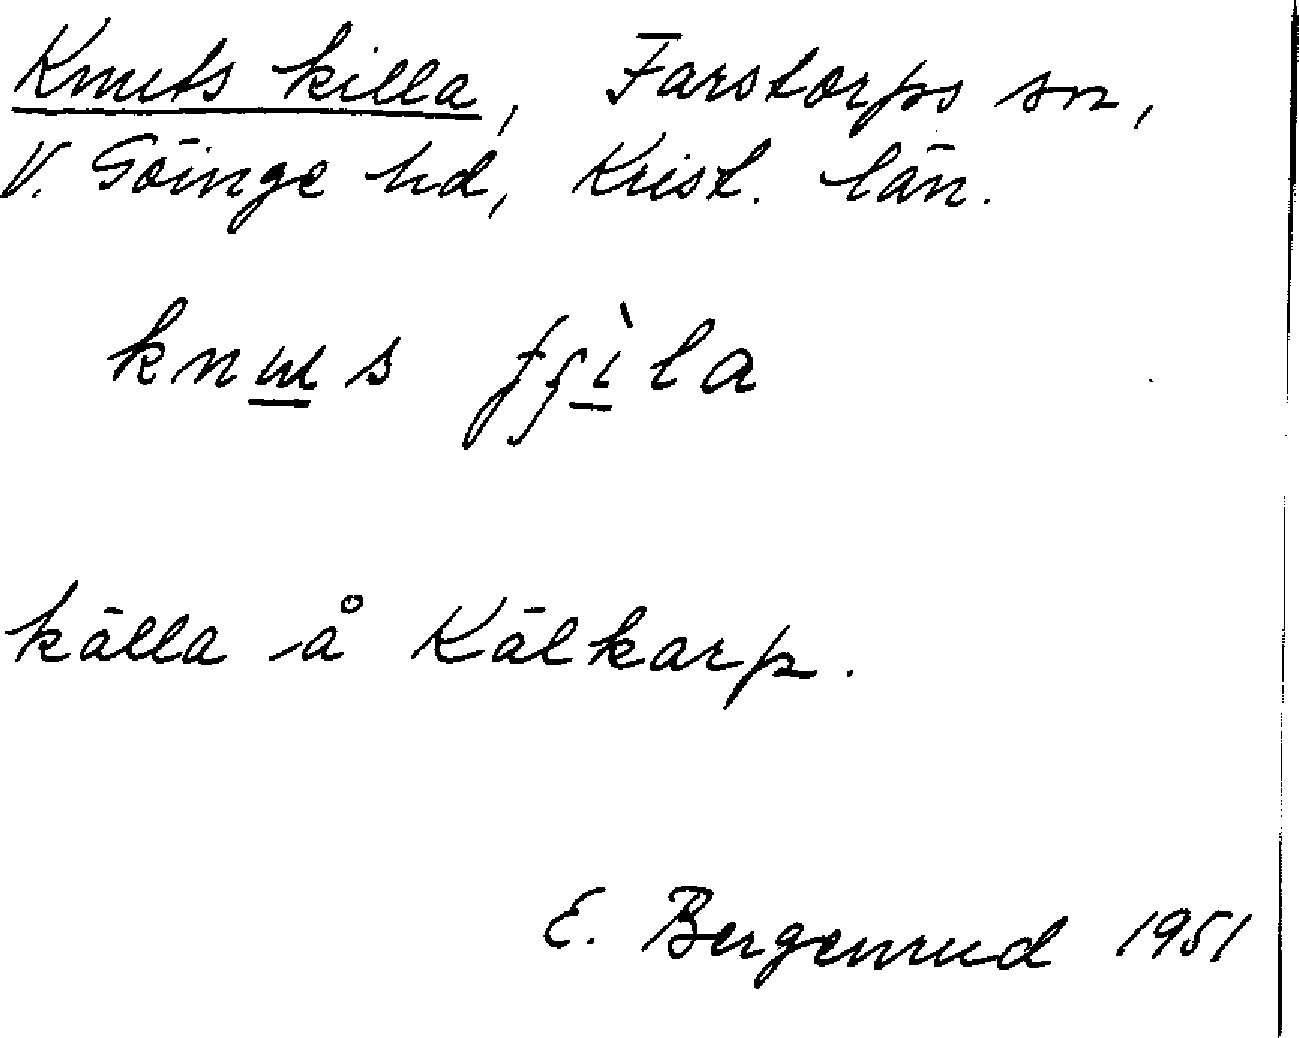 Knuts killa, Farstorps sn,
V. Göinge hd, Krist. län.
knɯs ʄʃìla
källa å Kälkarp.
E. Bergenrud 1951